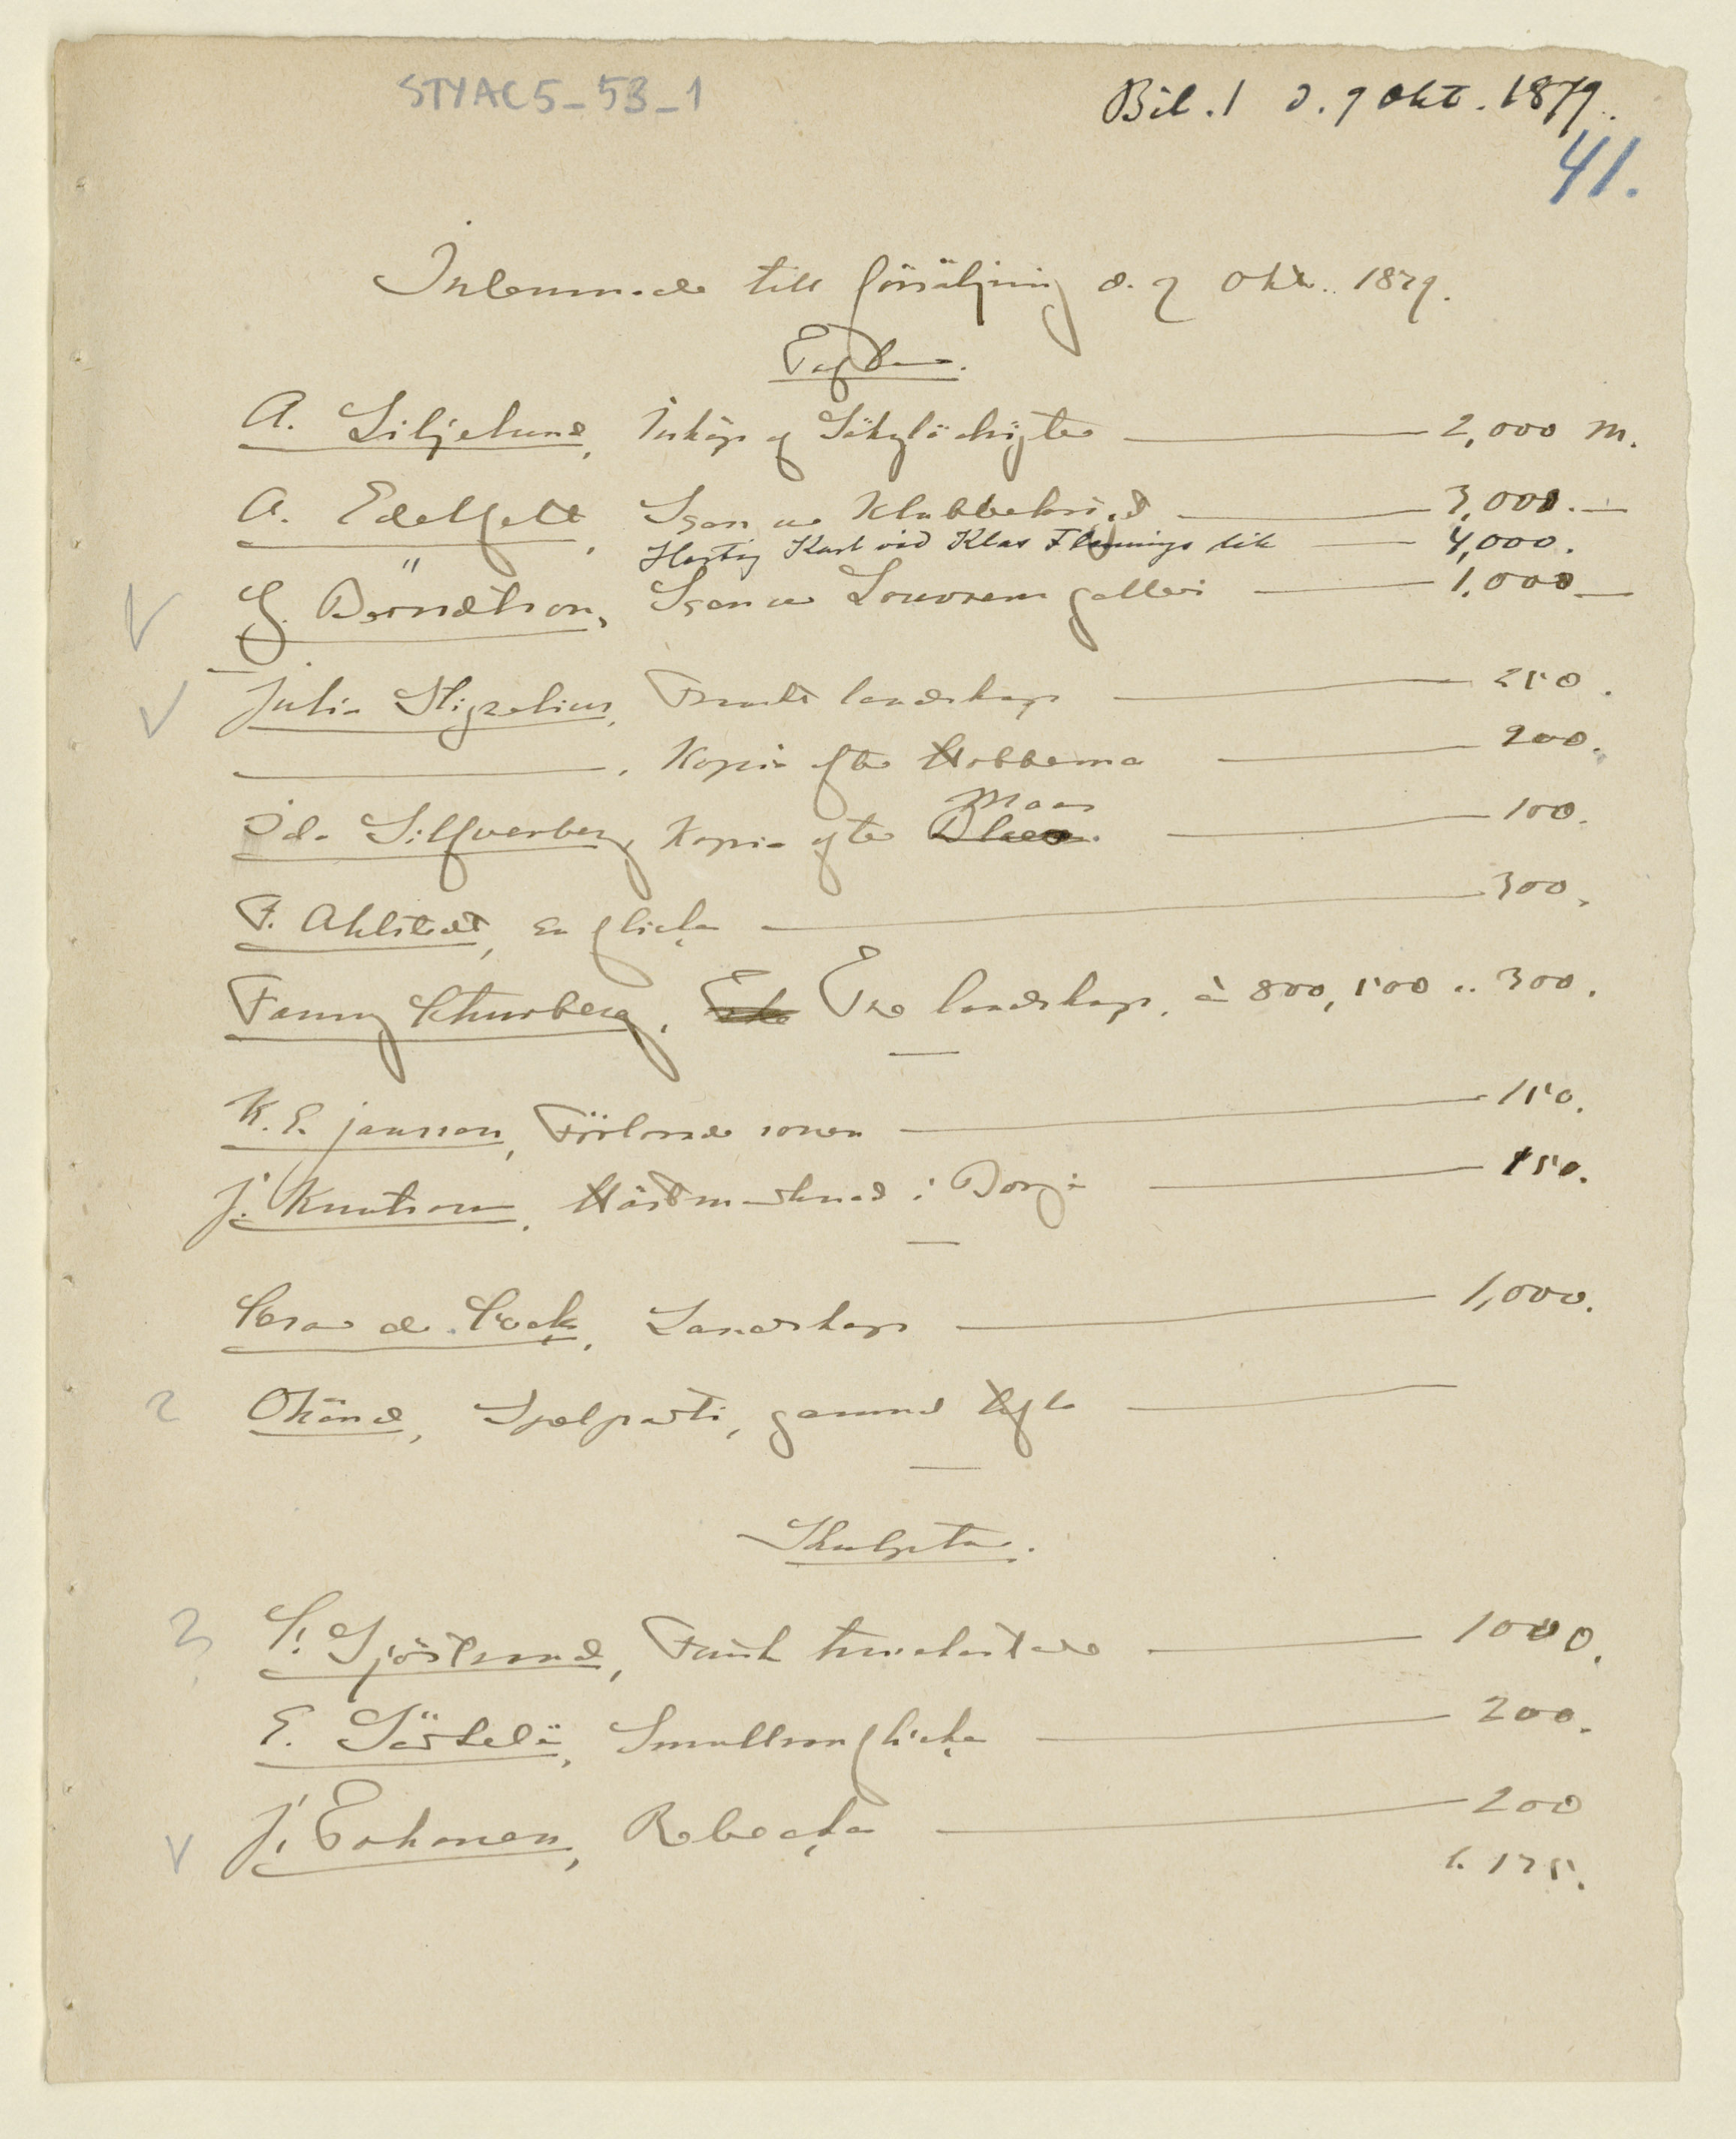 STYAC5_53_1
Bil. 1 d. 9 Okt. 1879.
41.
Inlemnade till försäljning d. 9 Okt. 1879.
Taflor.
A. Liljelund, Inköp af Säkylädrägter 2,000 m.
A. Edelfelt, Scen ur Klubbekriget 3,000.
" Hertig Karl vid Klas Flemings lik 4,000.
G. Berndtson, Scen ur Louvrens galleri 1,000
Julia Stigzelius, Franskt landskap 250.
, Kopia efter Hobbema 200.
Maas
Ida Silfverberg, Kopia efter 100.
F. Ahlstedt, en flicka 300.
Fanny Churberg, Tre landskap, à 800, 500 o. 300.
K. E. Jansson, Förlorade sonen 150.
J. Knutson, Hästmarknad i Borgå 150.
Cesar de Cock, Landskap 1,000.
Okänd, Spelparti, gammal tafla
Skulptur.
C. Sjöstrand, Faust 1000.
E. Särkelä, Smultronflicka 200.
J. Takanen, Rebecka 200
175.